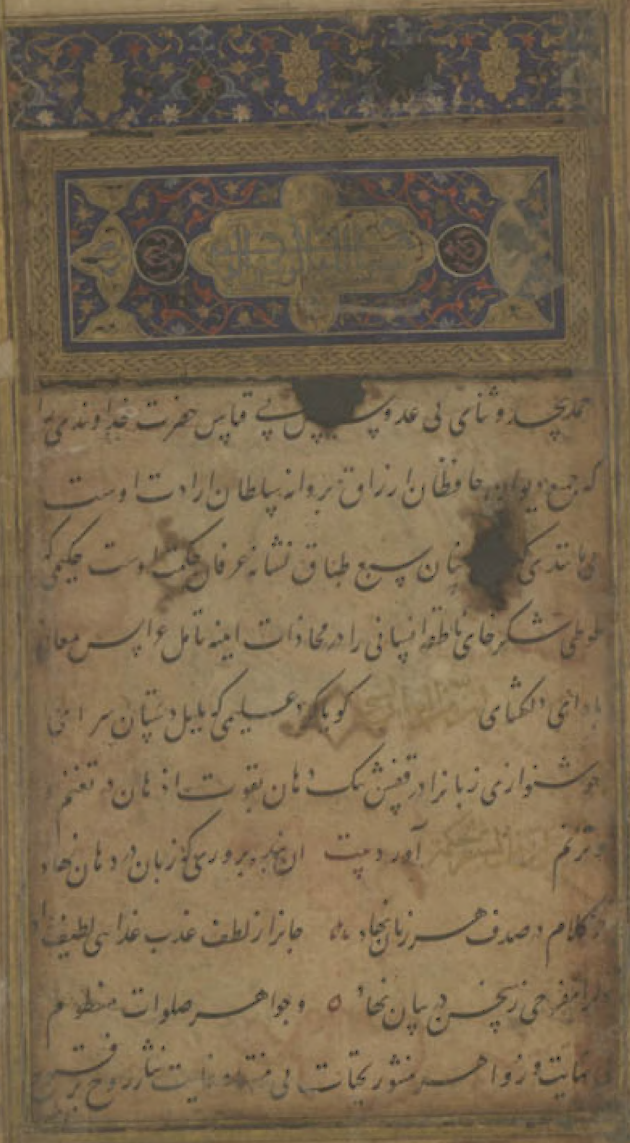 حمد بیحد و ثنای بی عدو سپاس بی قیاس حضرت خداوندی
که جمع دیوان حافظان ارزاق پروانه سلطان ارادت اوست
مانندی سبع طباق نشانه عرفان حکمت اوست حکیمی که
طوطی شکرخای ناطقه انسانی را در محاذات اینه تامل عرایس معانی
بادای دلکشای کویا کرد علیمی که بلبل دستان سرای
خوشنوای زبانرا در قفس تنک دهان بقوت اذهان در تغنم
و ترنم آورد بیت ان خرد پروری که زبان در دهان نهاد
در کلام در صدف هر زبان نهاد جانرا ز لطف عذب غذای لطیف داد
دلرا مفرحی ز سخن در بیان نهاد و جواهر صلوات منظوم
بی نهایت و زواهر منثور تحیات بی منتها و غایت نثار روح پر فتوح